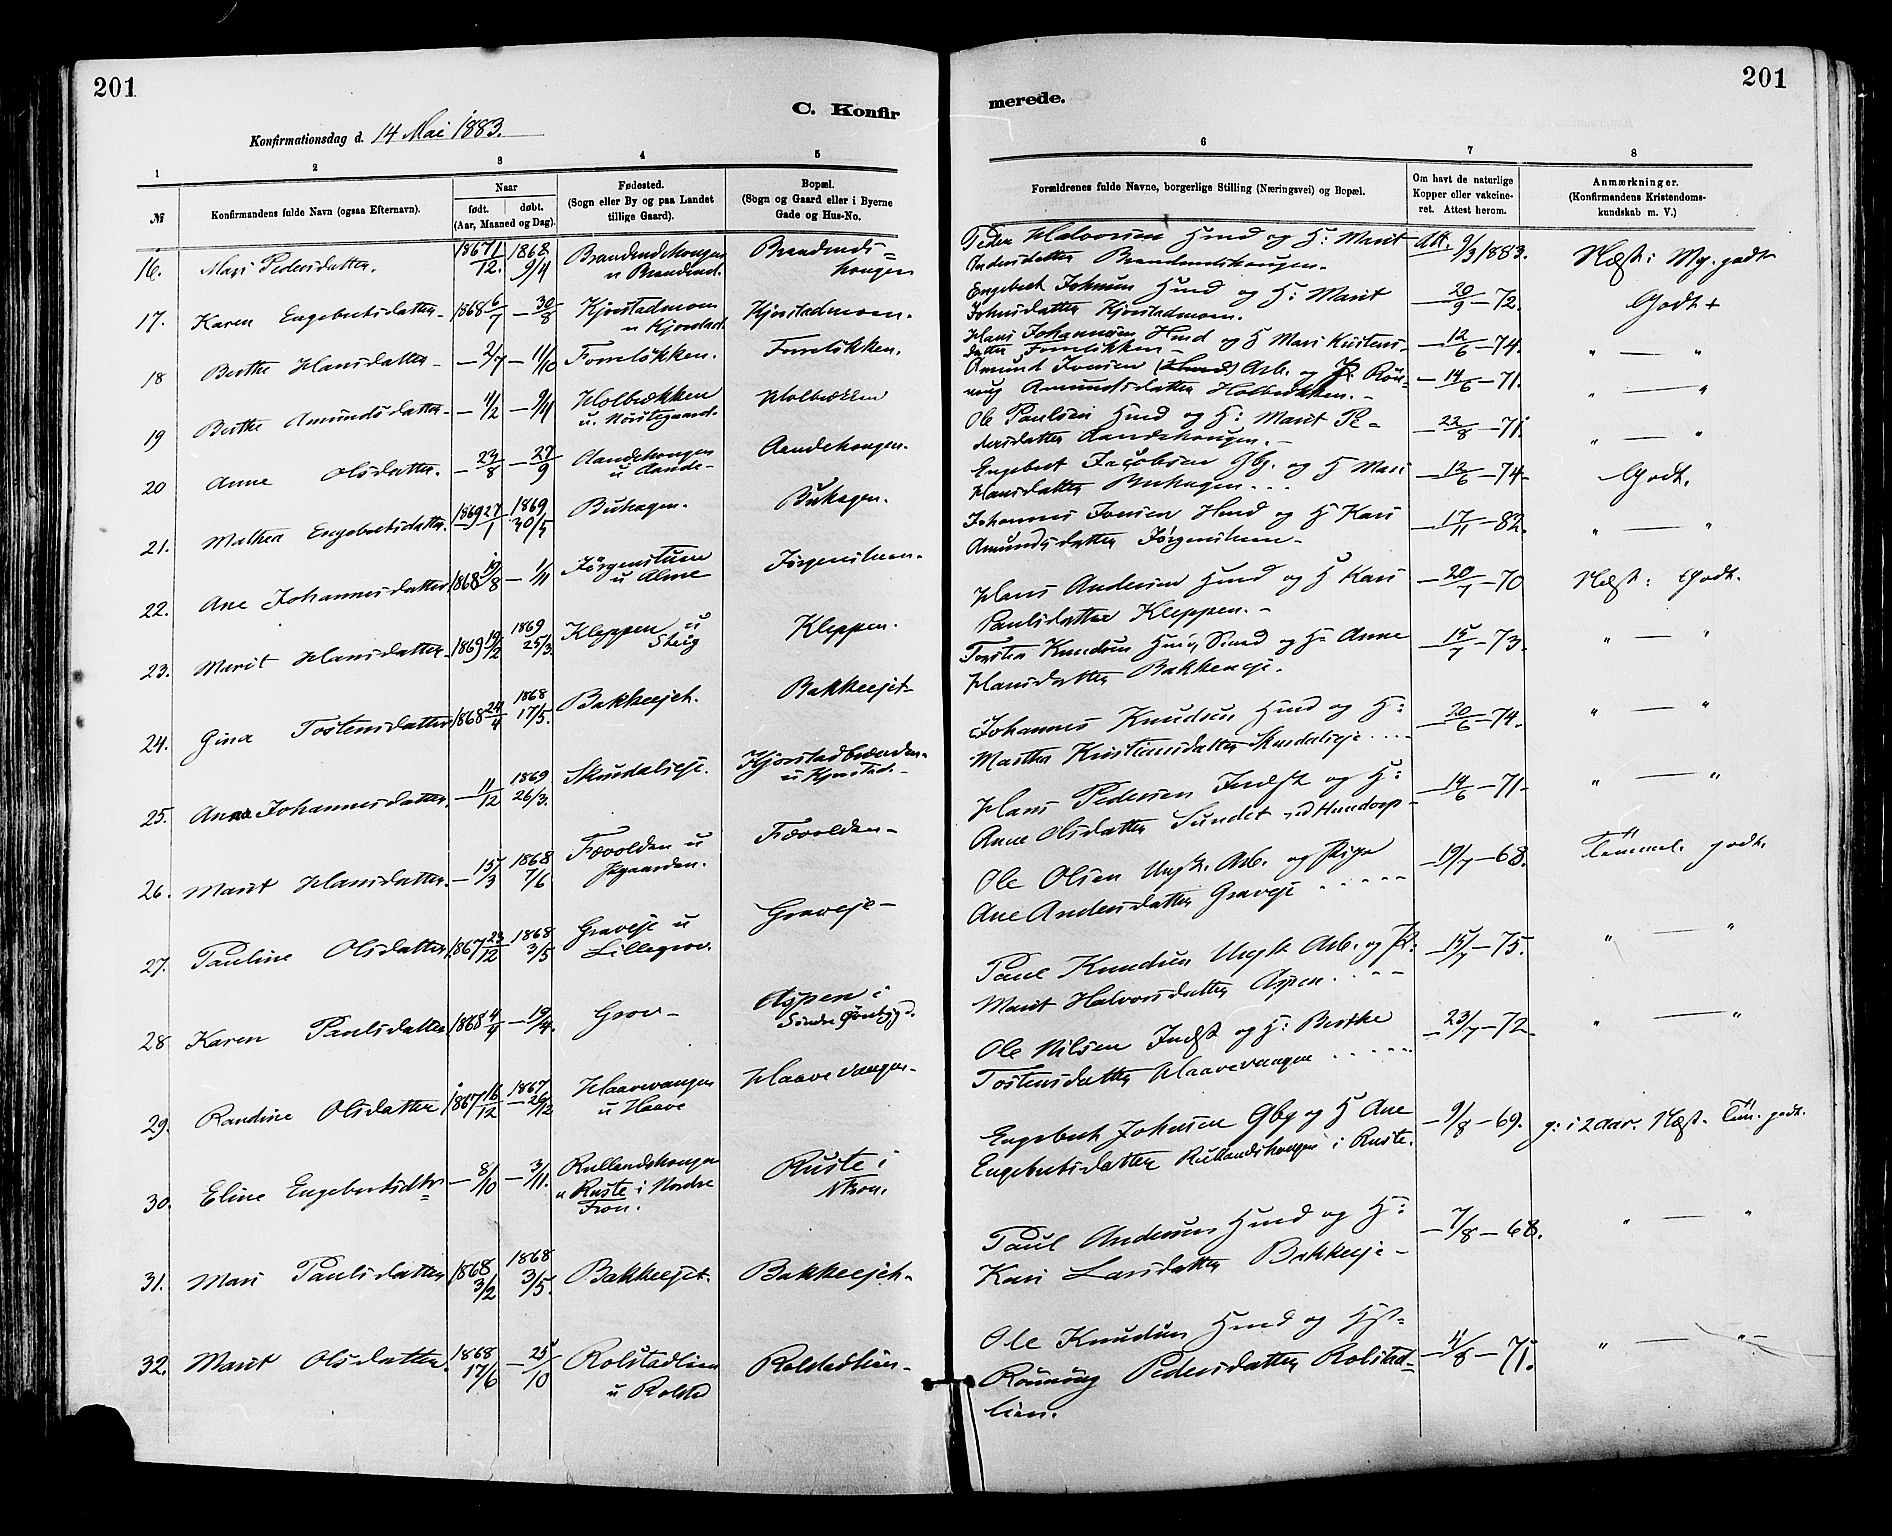 201
201
C. Konfir
merede.
Konfirmationsdag d. 14 Mai 1883.
1 2 3 4 5 6 7 8
№
Konfirmandens fulde Navn (ogsaa Efternavn).
Naar
født. døbt.
(Aar, Maaned og Dag).
Fødested.
(Sogn eller By og paa Landet
tillige Gaard).
Bopæl.
(Sogn og Gaard eller i Byerne
Gade og Hus-No.
Forældrenes fulde Navne, borgerlige Stilling (Næringsvei) og Bopæl.
Om havt de naturlige
Kopper eller vakcine-
ret. Attest herom.
Anmærkninger.
(Konfirmandens Kristendoms-
kundskab m. V.)
16. Mari Pedersdatter. 1867 1/12. 1868 9/4 Brandendshougen
u Brandend. Brandends=
hougen
Peder Halvorsen Hmd og H: Marit
Pedersdatter Brandendshougen. Att. 9/3 1883. Næst: Mg. godt
17. Karen Engebretsdatter 1868 6/7 — 30/8 Kjorstadmoen
u Kjorstad. Kjorstadmoen.
Engebret Johnsen Hmd og H: Marit
Johnsdatter Kjorstadmoen. — 20/9 — 72. Godt +
18 Berthe Hansdatter — 2/7 — 11/10 Forreløkken. Forreløkken.
Hans Johannesen Hmd og H Mari Kristens-
datter Forreløkken — 12/6 — 74. " — "
19 Berthe Amundsdatter — 11/2 — 9/4 Holbrækken
u. Nordregaard. Holbrækken
Amund Jonsen Arb. og Røn-
nøug Amundsdatter Holbrækken. — 14/6 — 71. " — "
20 Anne Olsdatter. — 23/8 — 27/9 Aandehougen
u Aande Aandehougen.
Ole Paulsen Hmd og H: Marit Pe-
dersdatter Aandehougen. — 22/8 — 71. " — "
21. Mathea Engebretsdatter. 1869 27/1 1869 30/5 Buhagen. Buhagen.
Engebret Jacobsen Gbr. og H Mari
Hansdatter Buhagen... — 12/6 — 74. Godt.
22. Ane Johannesdatter 1868 19/8 — 1/11 Jørgenstuen
u Alme Jørgenstuen.
Johannes Jonsen Hmd og H Kari
Amundsdatter Jørgenstuen — 17/11 — 82. " "
23. Marit Hansdatter. 1869 19/2 1869 25/3 Kleppen u
Steig Kleppen.
Hans Andersen Hmd og H Kari
Paulsdatter Kleppen. — 20/7 — 70 Næst: Godt.
24. Gina Tostensdatter 1868 24/4 1868 17/5. Bakkeejet. Bakkeejet
Torsten Knudsen Hmd og H: Anne
Hansdatter Bakkeneje. — 15/7 — 73. " — "
25. Anna Johannesdatter. — 11/12 1869 26/3. Skurdalseje. Kjorstadbrænden
u Kjorstad.
Johannes Knudsen Hmd og H:
Marthe Kristiansdatter Skurdalseje.... — 20/6 — 74. " — "
26. Marit Hansdatter. — 15/3 1868 7/6 Fævolden u
Fævolden
Hans Pedersen Indst og H:
Anne Olsdatter Sundet ved Hundorp — 14/6 — 71. " — "
27. Pauline Olsdatter. 1867 23/12 1868 3/5 Graveje u
Lillegrav. Graveje
Ole Olsen Ungk. Arb. og Pige
Ane Andersdatter Graveje ..... — 19/7 — 68. Temmel. godt.
28 Karen Paulsdatter 1868 4/4 — 19/4. Grov Aspen i
Søndre
Paul Knudsen Ungk Arb. og P:
Marit Halvorsdatter Aspen.... — 15/7 — 75. " — "
29. Randine Olsdatter 1867 16/12 1867 — 26/12 Haavevangen
u Haave Haavevangen
Ole Nilsen Indst og H: Berthe
Tostensdatter Haavevangen ..... — 23/7 — 72 " — "
30. Eline Engebretsdtr — 8/10 — 3/11. Rullandshougen
u Ruste i Nordre
Fron. Ruste i
N Fron.
Engebret Johnsen Gbr og H Ane
Engebretsdatter Rullandshougen i Ruste. — 9/8 — 69. g: i 2 aar. Næst. Tem. godt.
31. Mari Paulsdatter 1868 3/2 1868 3/5. Bakkeejet. Bakkeejet.
Paul Andersen Hmd og H:
Kari Larsdatter Bakkeeje — 7/8 — 68. " — "
32. Marit Olsdatter. 1868 17/6 — 25/10 Rolstadlien
u Rolstad Rolstadlien
Ole Knudsen Hmd og Hst
Rønnøug Pedersdatter Rolstad-
lien. — 11/8 — 71. " — "